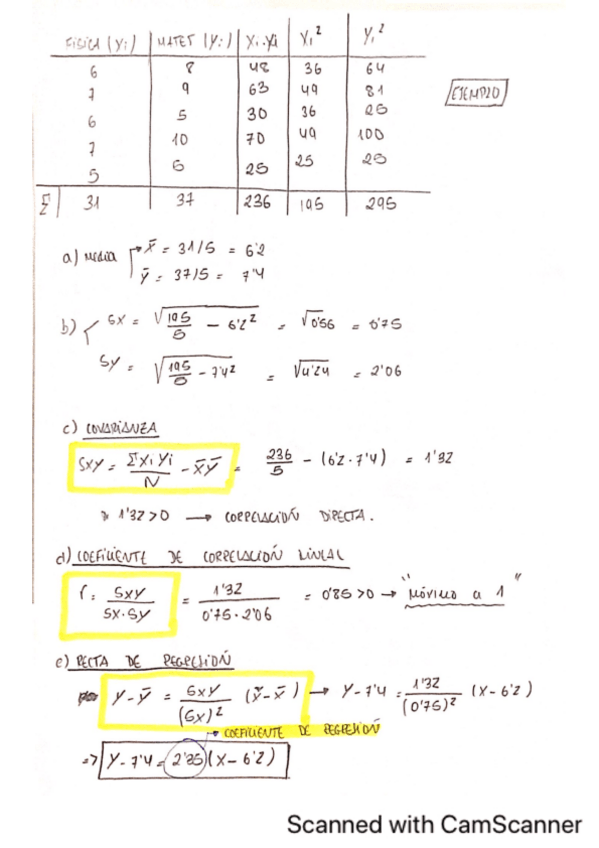 FÍSICA (Yi) MATET (Yi) Xi.Yi Xi² Yi²
6 8 48 36 64
7 9 63 49 81
EJEMPLO
6 5 30 36 25
7 10 70 49 100
5 5 25 25 25
Σ 31 37 236 195 295
a) MEDIA x̄ = 31/5 = 6'2
ȳ = 37/5 = 7'4
b) Sx = √(195/5 - 6'2²) = √0'56 = 0'75
Sy = √(195/5 - 7'4²) = √4'24 = 2'06
c) COVARIANZA
Sxy = ΣXi Yi/N - x̄ȳ = 236/5 - (6'2 · 7'4) = 1'32
» 1'32 > 0 → CORRELACIÓN DIRECTA.
d) COEFICIENTE DE CORRELACIÓN LINEAL
r = Sxy/Sx·Sy = 1'32/0'75·2'06 = 0'85 > 0 → "PRÓXIMO a 1"
e) RECTA DE REGRESIÓN
Y - ȳ = Sxy/(Sx)² (x̄ - x̄) → Y - 7'4 = 1'32/(0'75)² (X - 6'2)
→ COEFICIENTE DE REGRESIÓN
=> Y - 7'4 = 2'35 (X - 6'2)
Scanned with CamScanner